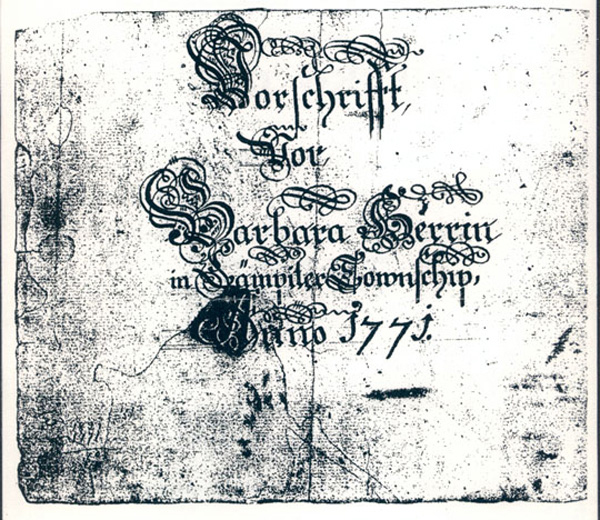 Vorſchrifft,
Vor
Barbara Herrin
in Townſchip,
Anno 1771.